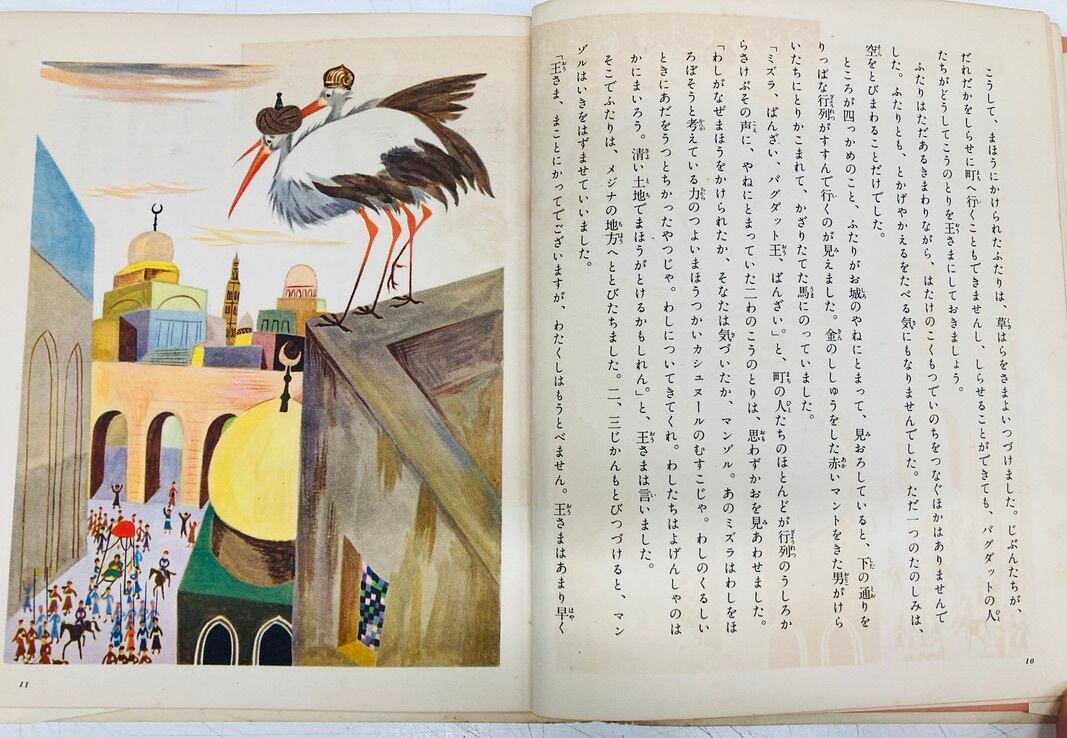 こうして、まほうにかけられたふたりは、草はらをさまよいつづけました。じぶんたちが、
だれだかをしらせに町へ行くこともできませんし、しらせることができても、バグダットの人
たちがどうしてこうのとりを王さまにしておきましょう。
ふたりはただあるきまわりながら、はたけのこくもつでいのちをつなぐほかはありませんで
した。ふたりとも、とかげやかえるをたべる気にもなりませんでした。ただ一つのたのしみは、
空をとびまわることだけでした。
ところが四っかめのこと、ふたりがお城のやねにとまって、見おろしていると、下の通りを
りっぱな行列がすすんで行くのが見えました。金のししゅうをした赤いマントをきた男がけら
いたちにとりかこまれて、かざりたてた馬にのっていました。
「ミズラ、ばんざい、バグダット王、ばんざい。」と、町の人たちのほとんどが行列のうしろか
らさけぶその声に、やねにとまっていた二わのこうのとりは、思わずかおを見あわせました。
「わしがなぜまほうをかけられたか、そなたは気づいたか、マンゾル。あのミズラはわしをほ
ろぼそうと考えている力のつよいまほうつかいカシュヌールのむすこじゃ。わしのくるしい
ときにあだをうつとちかったやつじゃ。わしについてきてくれ。わしたちはよげんしゃのは
かにまいろう。清い土地でまほうがとけるかもしれん。」と、王さまは言いました。
そこでふたりは、メジナの地方へととびたちました。二、三じかんもとびつづけると、マン
ゾルはいきをはずませていいました。
「王さま、まことにかってでございますが、わたくしはもうとべません。王さまはあまり早く
10
11